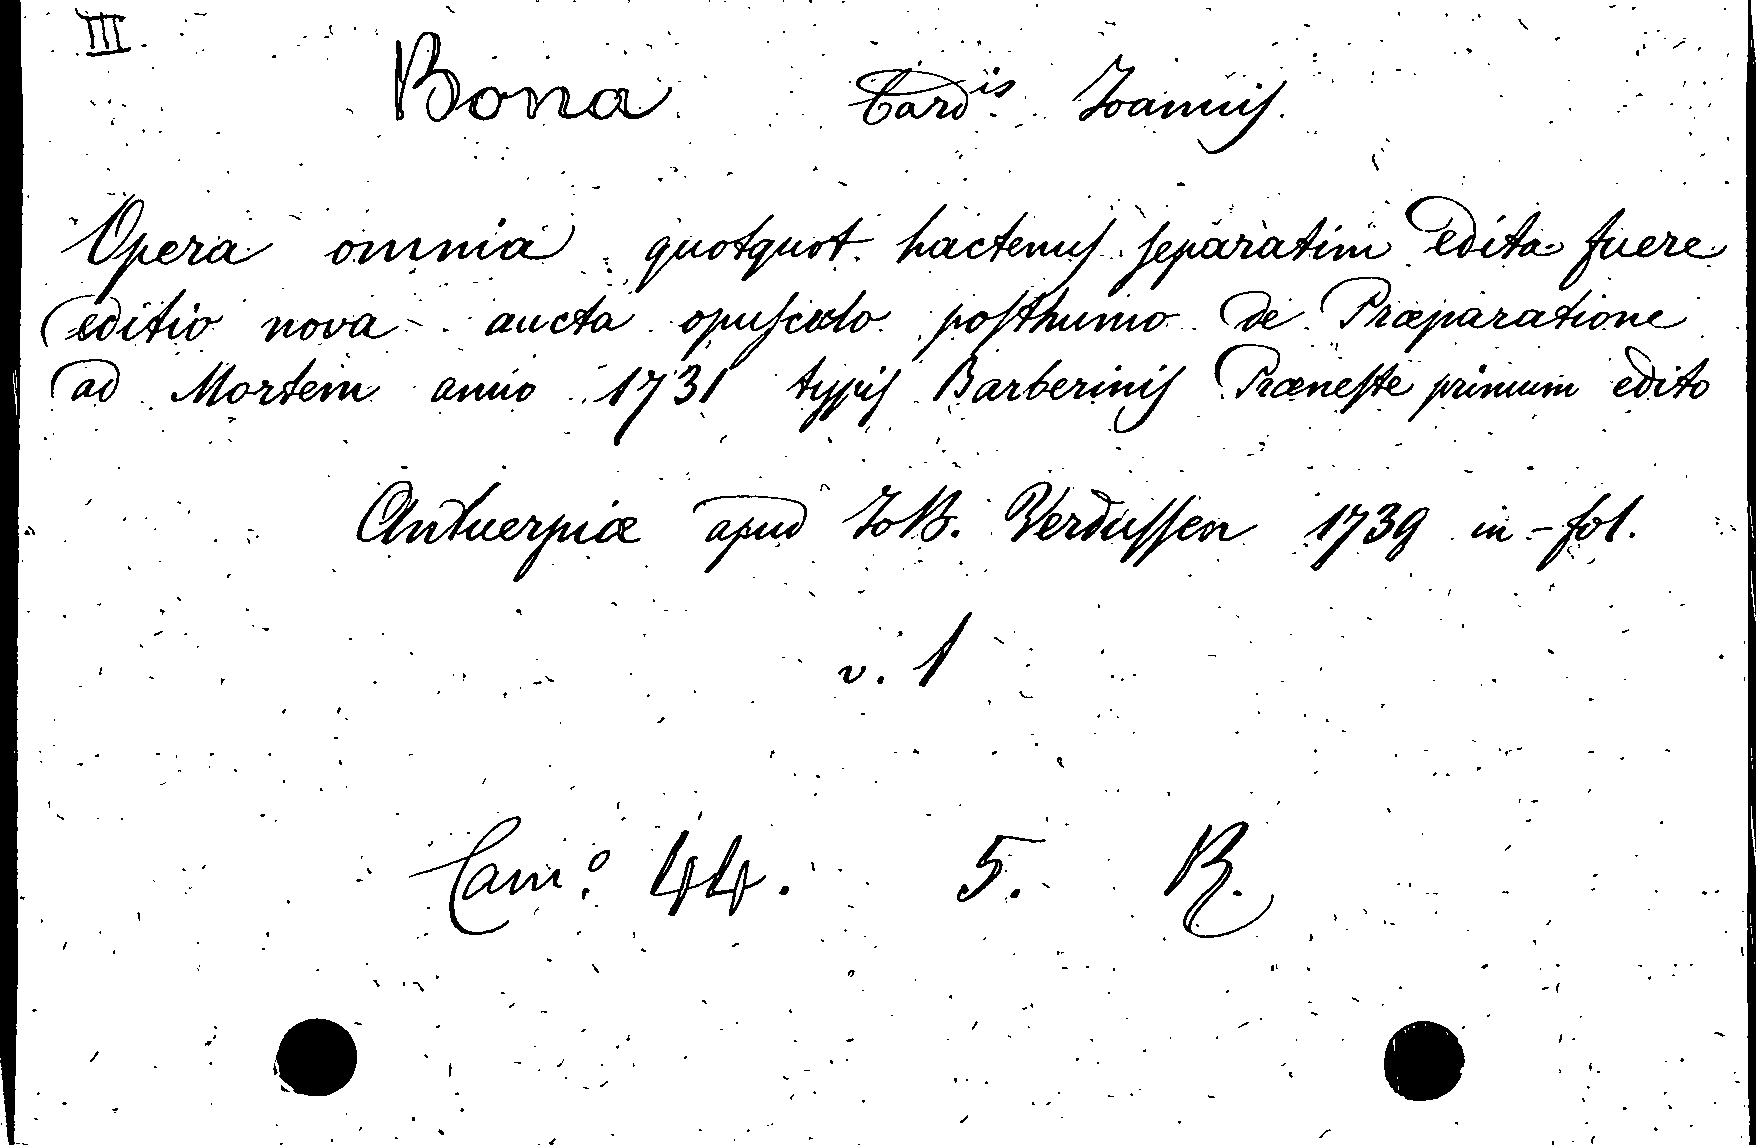 III.
Bona Card.is Joannis.
Opera omnia quotquot hactenus separatim edita fuere
editio nova aucta opusculo posthumo de Præparatione
ad Mortem anno 1731 typis Barberinis Præneste primum edito
Antuerpiæ apud Jo B. Verdussen 1739 in-fol.
v. 1
Cam.o 44. 5. R.